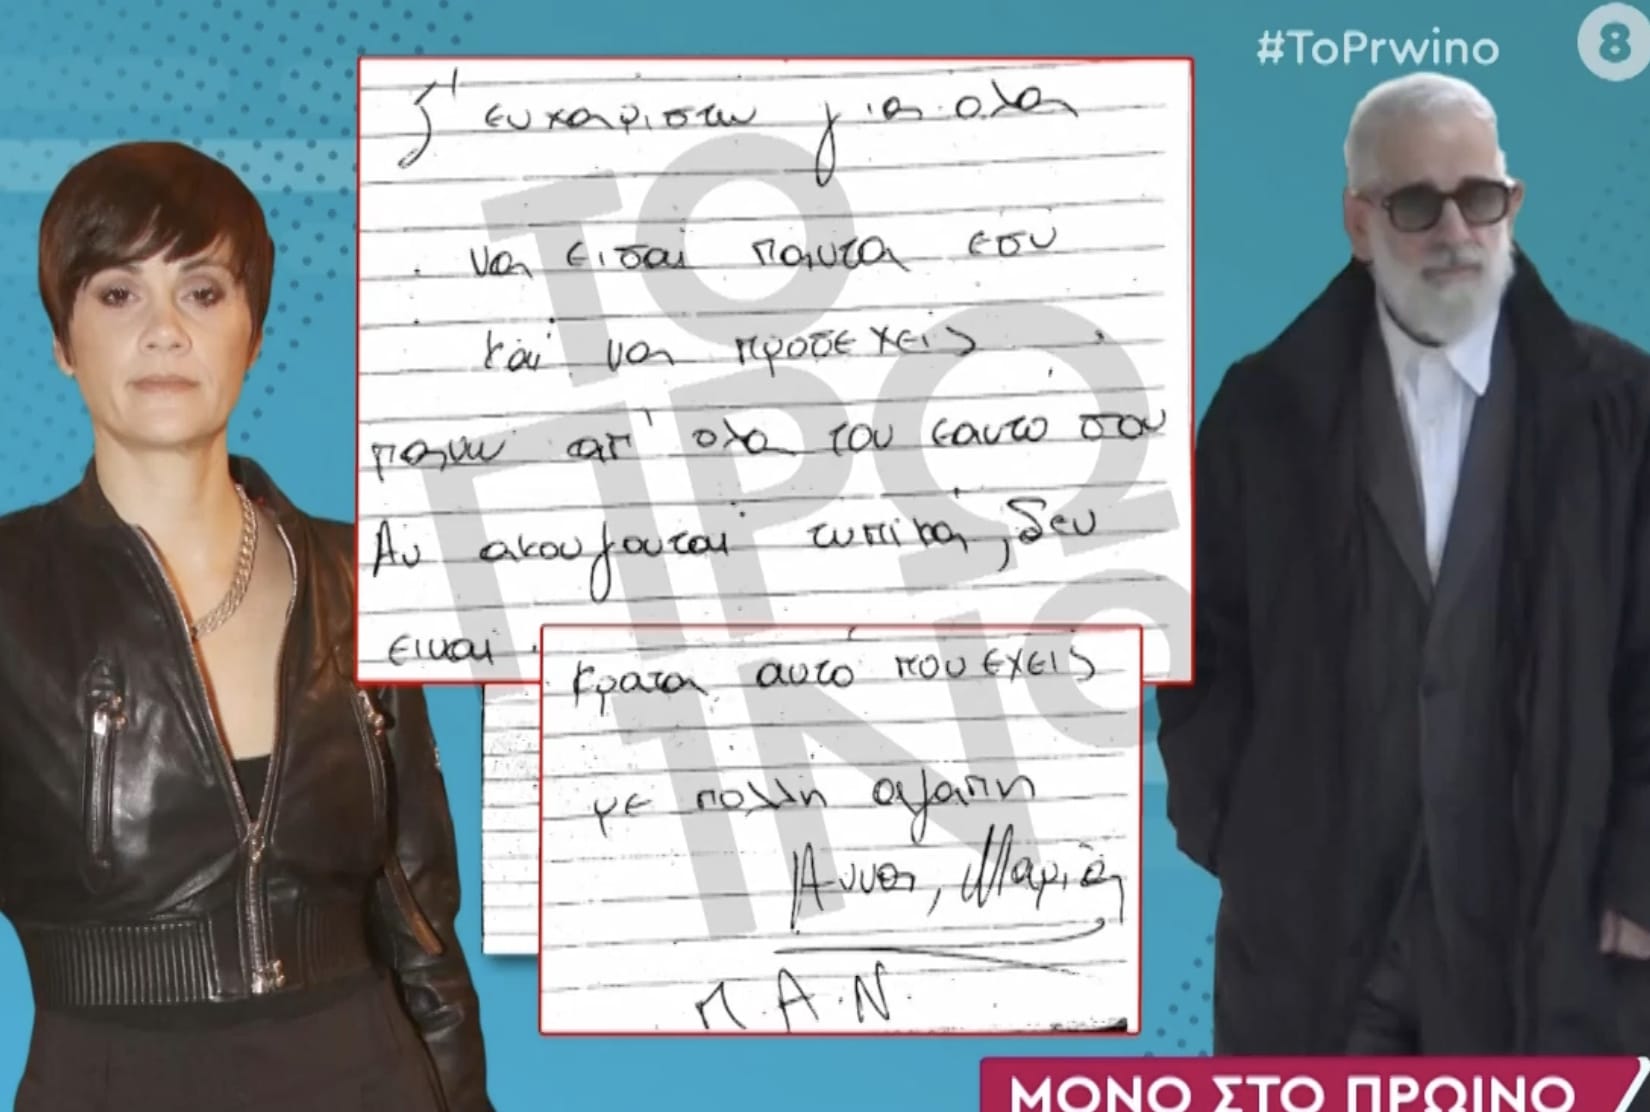 #ToPrwino 8
Σ' ευχαριστω για ολα
Να εισαι παντα εσυ
και να προσεχεις
πανω απ' ολα τον εαυτο σου
Αν ακουγονται τυπικα, δεν
ειναι.
Κρατα αυτο που εχεις
με πολλη αγαπη
Αννα, Μαρια
Π.Α.Ν.
ΤΟ
ΠΡΩ
ΙΝΟ
ΜΟΝΟ ΣΤΟ ΠΡΩΙΝΟ